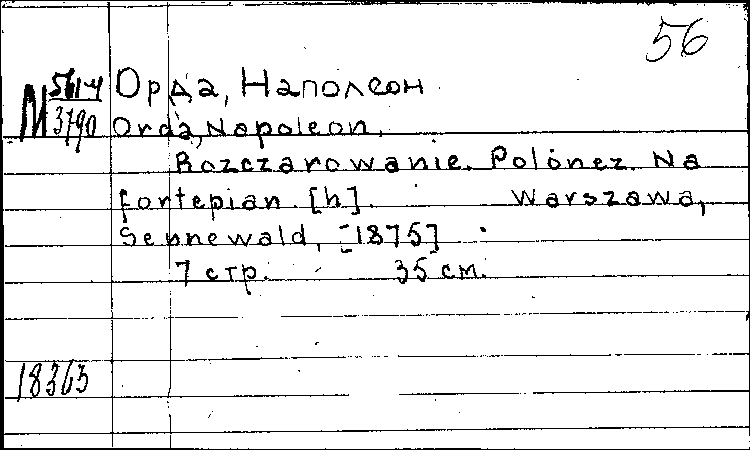 56
М 561-4 Орда, Наполеон
3790 Orda, Napoleon.
Rozczarowanie. Polonez. Na
fortepian. [h]. Warszawa,
Sennewald, [1875]
7 стр. 35 см.
18363